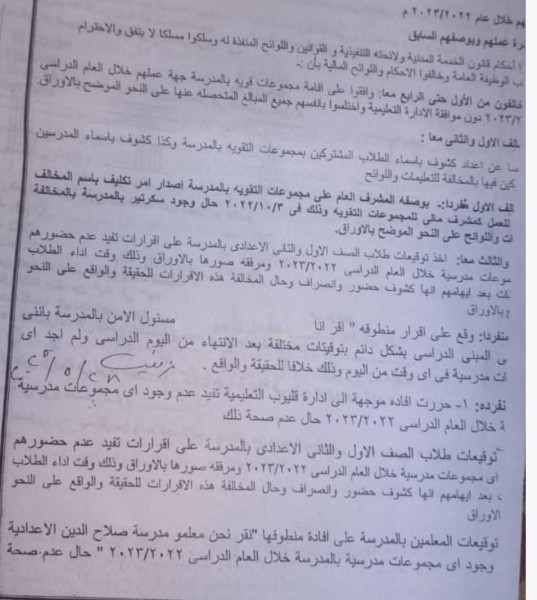 هم خلال عام ٢٠٢٣/٢٠٢٢ م
رة عملهم وبوصفهم السابق
ا أحكام قانون الخدمة المدنية ولائحته التنفيذية و القوانين واللوائح المنفذة له وسلكوا مسلكا لا يتفق والاحترام
ب الوظيفة العامة وخالفوا الاحكام واللوائح المالية بأن :-
خالفون من الأول حتى الرابع معا: وافقوا على اقامة مجموعات تقويه بالمدرسة جهة عملهم خلال العام الدراسى
٢٠٢٣/٢ دون موافقة الادارة التعليمية واختلسوا بانفسهم جميع المبالغ المتحصله عنها على النحو الموضح بالاوراق.
الف الاول والثانى معا :
سا عن اعداد كشوف باسماء الطلاب المشتركين بمجموعات التقويه بالمدرسة وكذا كشوف باسماء المدرسين
كين فيها بالمخالفة للتعليمات واللوائح
الف الاول منفردا:- بوصفه المشرف العام على مجموعات التقويه بالمدرسة إصدار امر تكليف باسم المخالف
للعمل كمشرف مالى للمجموعات التقويه وذلك فى ٢٠٢٢/١٠/٣ حال وجود سكرتير بالمدرسة بالمخالفة
ات واللوائح على النحو الموضح بالاوراق.
والثالث معا: اخذ توقيعات طلاب الصف الاول والثانى الاعدادى بالمدرسة على اقرارات تفيد عدم حضورهم
موعات مدرسية خلال العام الدراسى ٢٠٢٣/٢٠٢٢ ومرفقه صورها بالاوراق وذلك وقت اداء الطلاب
ات بعد ايهامهم انها كشوف حضور وانصراف وحال المخالفة هذه الاقرارات للحقيقة والواقع على النحو
ع بالاوراق
منفردا: وقع على اقرار منطوقه " اقر انا مسئول الامن بالمدرسة باننى
ى المبنى الدراسى بشكل دائم بتوقيتات مختلفة بعد الانتهاء من اليوم الدراسى ولم اجد اى
ات مدرسية فى اى وقت من اليوم وذلك خلافا للحقيقة والواقع .
نفرده: ١- حررت افاده موجهة الى ادارة قليوب التعليمية تفيد عدم وجود اى مجموعات مدرسية
ة خلال العام الدراسى ٢٠٢٣/٢٠٢٢ حال عدم صحة ذلك
توقيعات طلاب الصف الاول والثانى الاعدادى بالمدرسة على اقرارات تفيد عدم حضورهم
اى مجموعات مدرسية خلال العام الدراسى ٢٠٢٣/٢٠٢٢ ومرفقه صورها بالاوراق وذلك وقت اداء الطلاب
، بعد ايهامهم انها كشوف حضور وانصراف وحال المخالفة هذه الاقرارات للحقيقة والواقع على النحو
الاوراق
توقيعات المعلمين بالمدرسة على افادة منطوقها "نقر نحن معلمو مدرسة صلاح الدين الاعدادية
وجود اى مجموعات مدرسية بالمدرسة خلال العام الدراسى ٢٠٢٣/٢٠٢٢ " حال عدم صحة